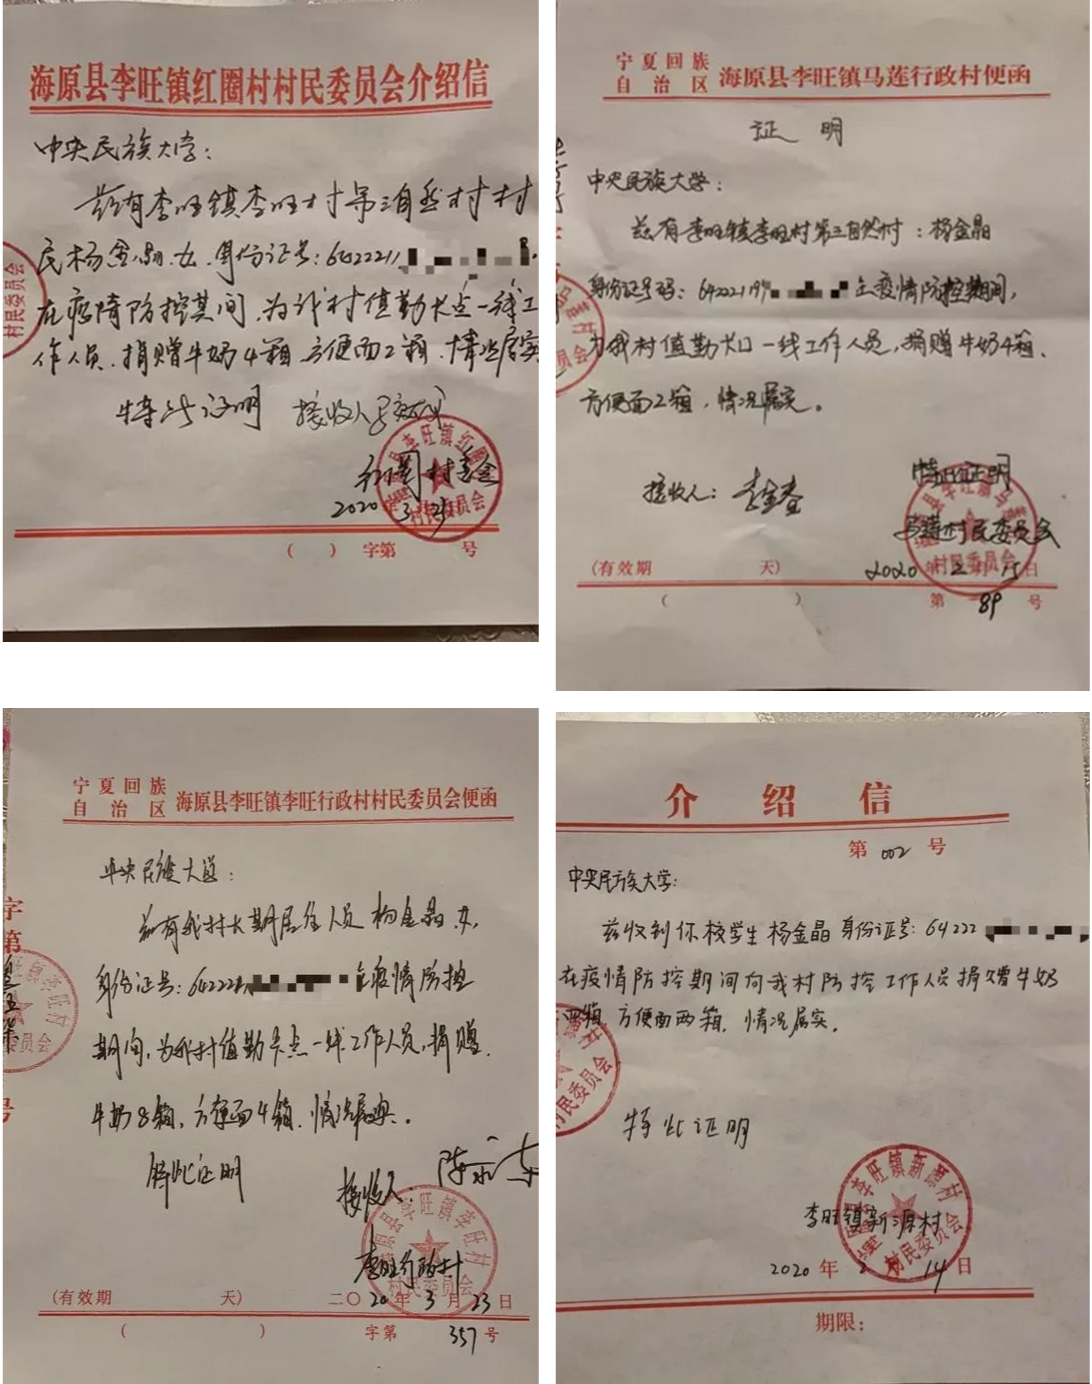 海原县李旺镇红圈村村民委员会介绍信
中央民族大学：
兹有李旺镇李旺村第三自然村村
民杨金晶.女.身份证号:6422211
在疫情防控期间,为我村值勤卡点一线工
作人员.捐赠牛奶4箱 方便面2箱.情况属实
特此证明 接收人
红圈村委会
2020 3
海原县李旺镇红圈村
村民委员会
村民委员会
( ) 字第 号
宁夏回族
自治区 海原县李旺镇马莲行政村便函
证 明
中央民族大学：
兹有李旺镇李旺村第三自然村：杨金晶
身份证号码：64222119 在疫情防控期间，
为我村值勤卡口一线工作人员,捐赠牛奶4箱、
方便面2箱，情况属实。
特此证明
接收人：
马莲村民委员会
村民委员会
(有效期 天) 2020年2月15日
( ) 第 89 号
宁夏回族
自治区 海原县李旺镇李旺行政村村民委员会便函
中央民族大学：
兹有我村长期居住人员杨金晶.女.
身份证号:64222 在疫情防控
期间,为我村值勤卡点一线工作人员,捐赠.
牛奶8箱,方便面4箱.情况属实。
特此证明
接收人：陈
李旺行政村
村民委员会
(有效期 天) 二〇20年3月23日
( ) 字第 357 号
字第
号
介绍信
第 002 号
中央民族大学:
兹收到你校学生杨金晶身份证号:64222
在疫情防控期间向我村防控工作人员捐赠牛奶
四箱 方便面两箱,情况属实。
村民委员会
特此证明
海原县李旺镇新源村
村民委员会
李旺镇新源村
2020年2月14日
期限：